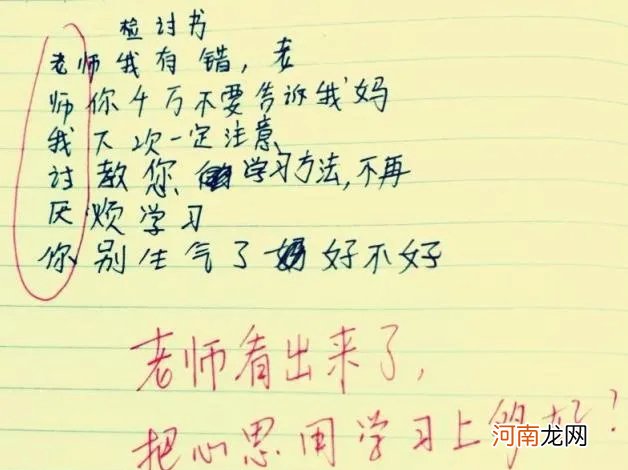 检讨书
老师我有错，老
师你千万不要告诉我妈
我下次一定注意
讨教您 学习方法，不再
厌烦学习
你别生气了 好不好
老师看出来了，
把心思用学习上多好？
河南龙网